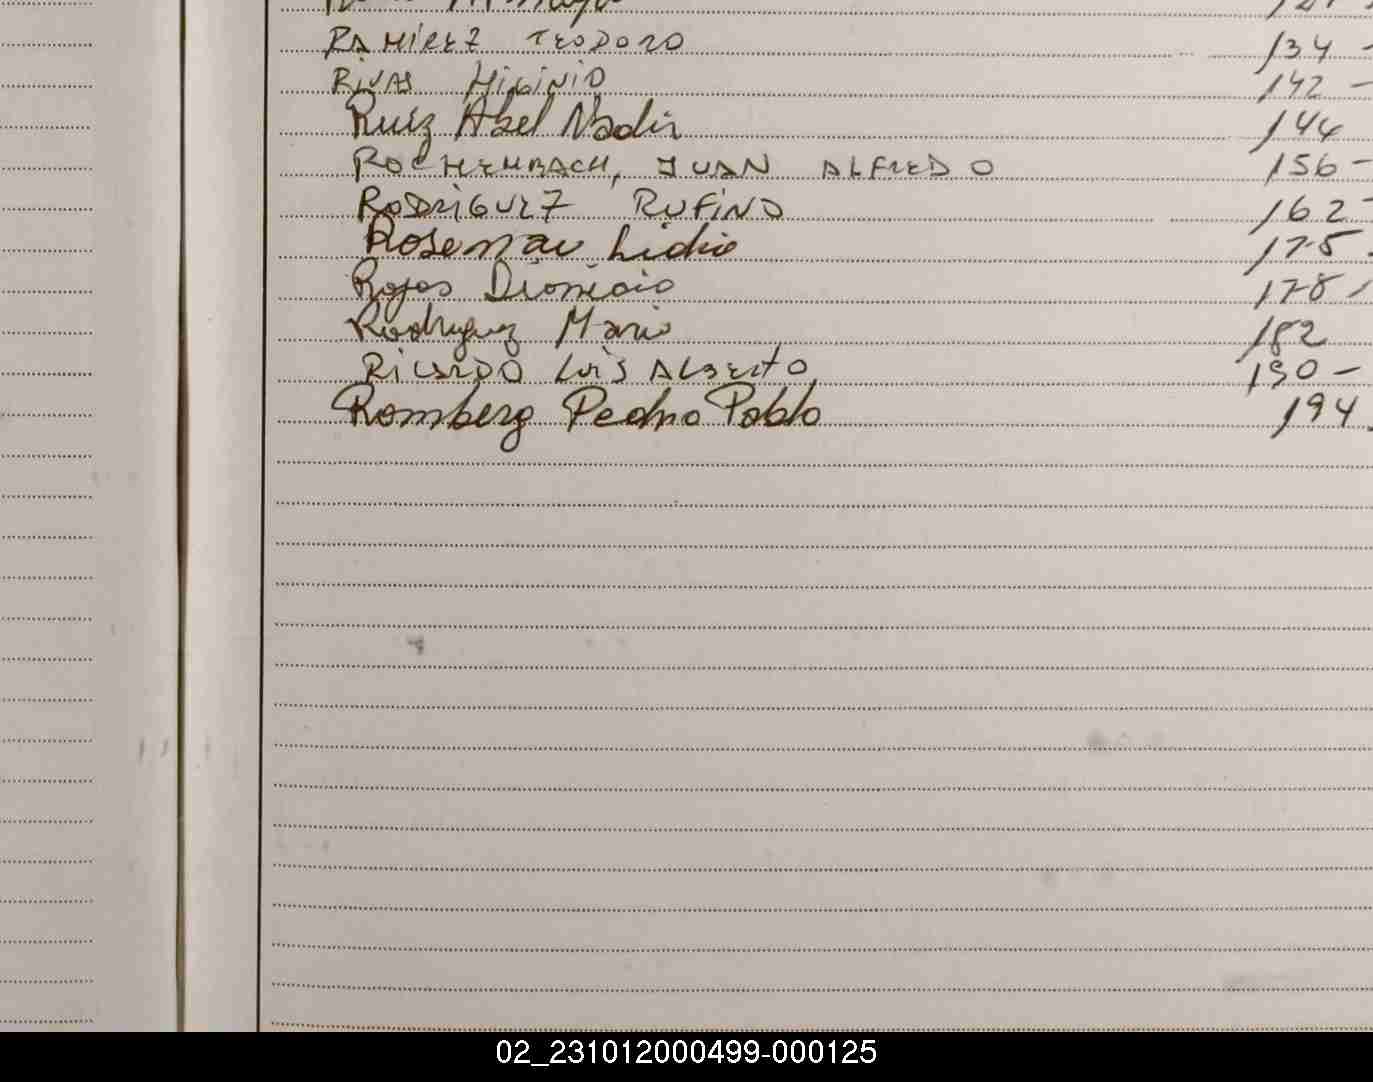 RAMIREZ TEODORO 134 -
RIVAS HIGINIO 142 -
Ruiz Abel Nadir 144
ROCHEMBACH, JUAN ALFREDO 156 -
RODRIGUEZ RUFINO 162 -
Lidia 175 -
Rojas Dionicio 178 -
Rodriguez Mario 182
RICARDO LUIS ALBERTO 190 -
Romberg Pedro Pablo 194 -
02_231012000499-000125